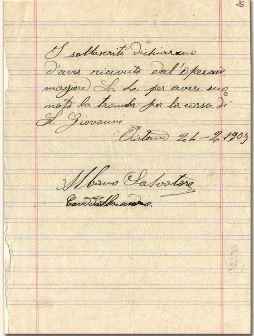 I sottoscritti dichiarano
d'aver ricevuto dal'operaio
magiore L. 2. per avere suo
nato la tromba per la corsa di
S. Giovanni
24-2-1903
Albano Salvatore